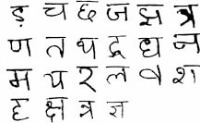 ड़ च छ ज झ त्र
ण त थ द्र ध न
म प र ल व श
ह क्ष त्र ज्ञ